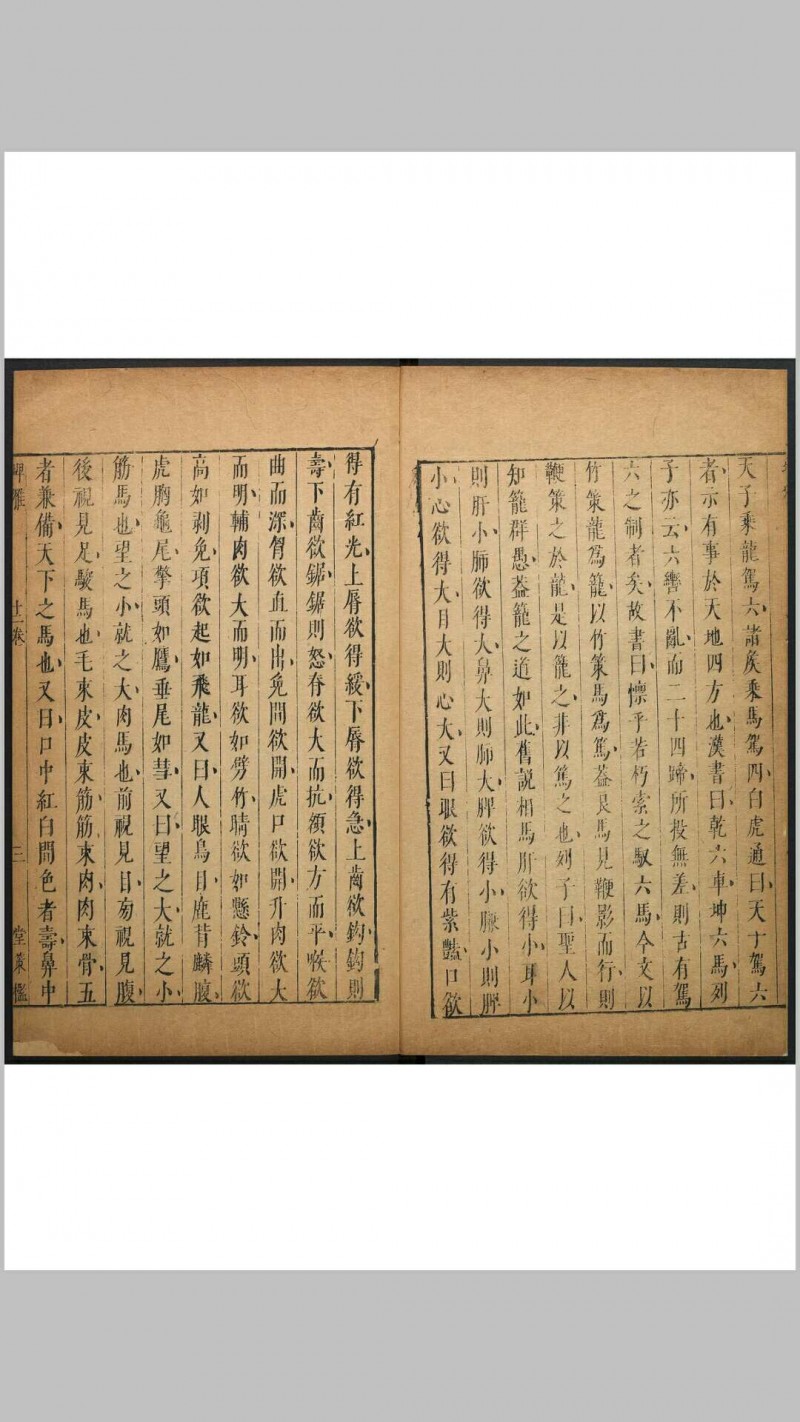 天子乘龍駕六諸矦乘馬駕四白虎通曰天子駕六
者示有事於天地四方也漢書曰乾六車坤六馬列
子亦云六轡不亂而二十四蹄所投無差則古有駕
六之制者矣故書曰懍乎若朽索之馭六馬今文以
竹策龍為籠以竹策馬為篤蓋良馬見鞭影而行則
鞭策之於龍是以籠之非以篤之也列子曰聖人以
知籠群愚蓋籠之道如此舊說相馬肝欲得小耳小
則肝小肺欲得大鼻大則肺大脾欲得小膁小則脾
小心欲得大目大則心大又曰眼欲得有紫豔口欲
得有紅光上唇欲得緩下唇欲得急上齒欲鈎鈎則
壽下齒欲鋸鋸則怒脊欲大而抗頷欲方而平喉欲
曲而深胷欲直而出凫間欲開虎口欲開升肉欲大
而明輔肉欲大而明耳欲如劈竹睛欲如懸鈴頭欲
高如剥兔項欲起如飛龍又曰人眼鳥目鹿背麟腹
虎胸龜尾擎頭如鷹垂尾如彗又曰望之大就之小
筋馬也望之小就之大肉馬也前視見目旁視見腹
後視見足駿馬也毛束皮皮束筋筋束肉肉束骨五
者兼備天下之馬也又曰口中紅白間色者壽鼻中
埤雅 十二卷 三 堂策檻